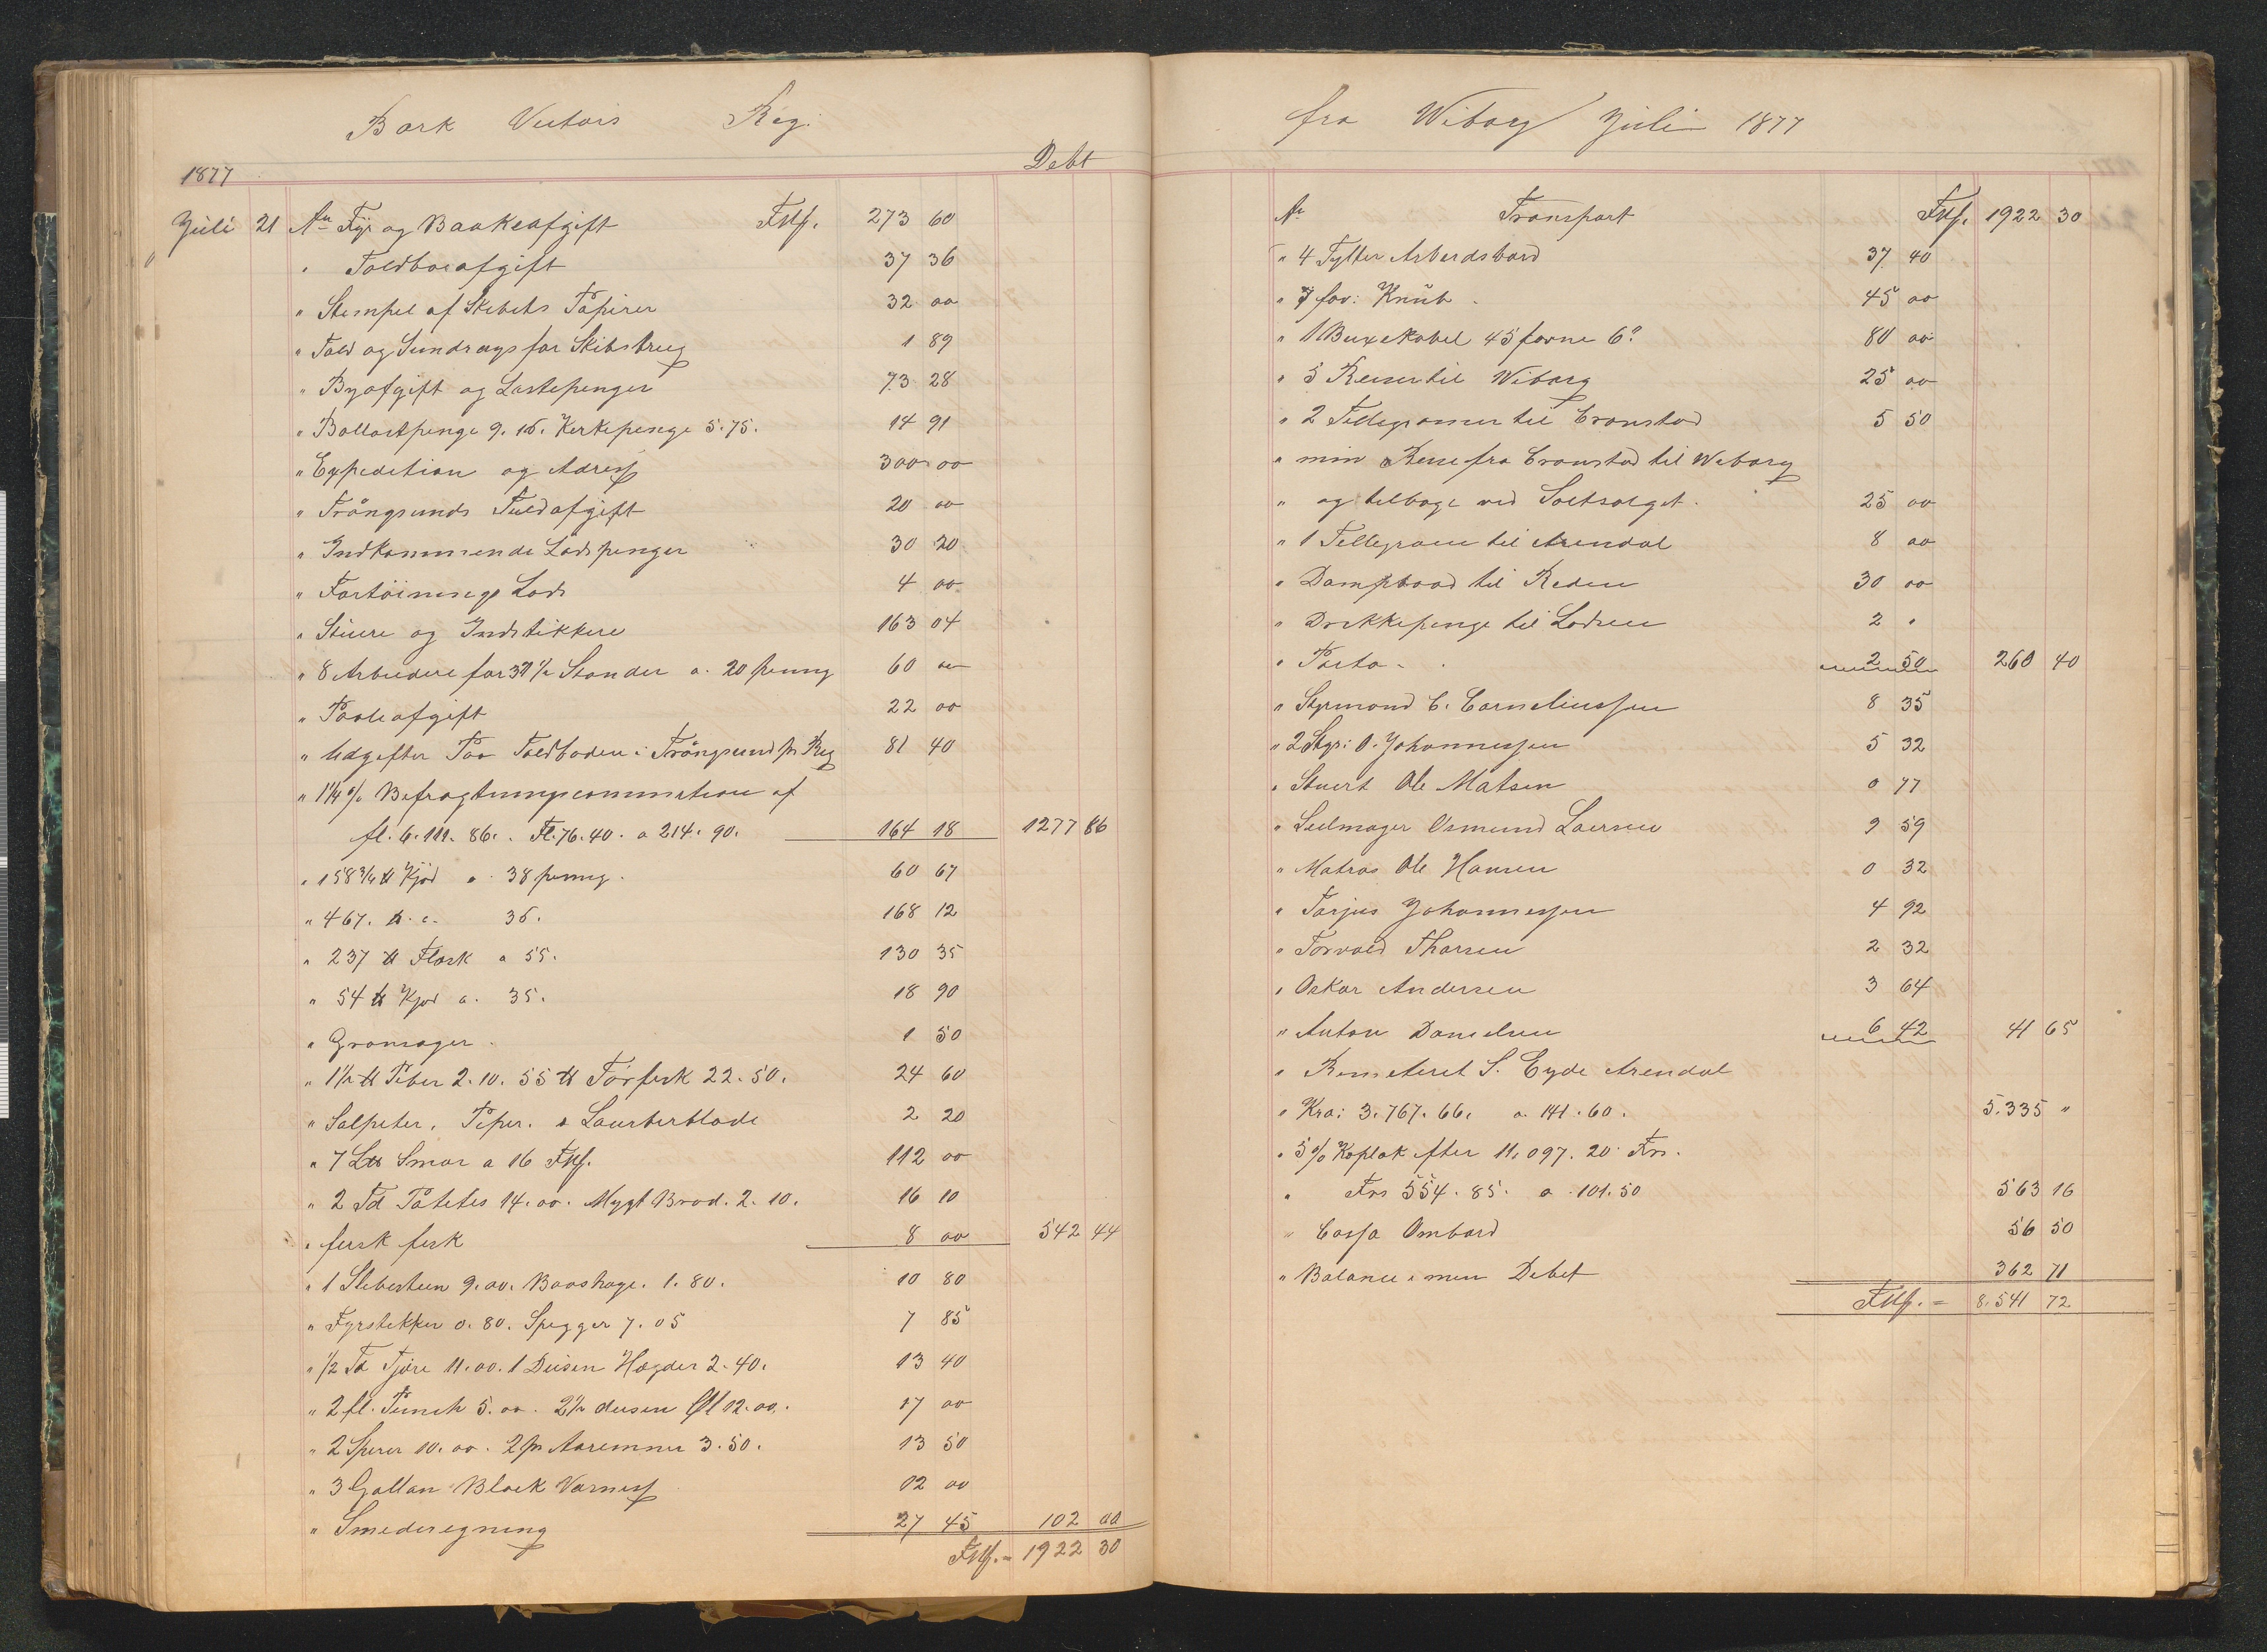 Bark Victors Reg:
Debt
1877
Juli 21 An Fyr og Baakeafgift FMf. 273 60
" Toldboeafgift 37 36
" Stempel af Skibets Papirer 32 00
" Told og for Skibsbrug 1 89
" Byafgift og Lastepenger 73 28
" Ballastpenge 9.16. Kerkepenge 5.75. 14 91
" Expedition og Adress 300 00
" Trångsunds Toldafgift 20 00
" Indkommende Lodspenger 30 20
" Fortöinings Lods 4 00
" Stuere og Indstikkere 163 04
" 8 Arbeidere for 37½ Stonder a. 20 penny 60 00
" Paaleafgift 22 00
" Udgifter Paa Toldboden i Trångsund pr Reg 81 40
" 1¼ % Befragtningscommission af
fl. 6.111.86. Fl. 76.40. a 214.90. 164 18 1277 86
" 158¾ ℔ Kjöd a 38 penny. 60 67
" 467. ℔. a. 36. 168 12
" 237 ℔ Flæsk a 55. 130 35
" 54 ℔ Kjod a. 35. 18 90
" Gronsager. 1 50
" 1½ ℔ Peber 2.10. 55 ℔ Törfisk 22.50. 24 60
" Salpeter, Peper. & Laurberblade 2 20
" 7 L℔ Smør a 16 FMf. 112 00
" 2 Td Pótetes 14.00. Mygt Brod. 2.10. 16 10
" fersk fesk 8 00 542 44
" 1 Slebesteen 9.00. Baashage. 1.80. 10 80
" Fyrstekker 0.80. Spegger 7.05 7 85
" ½ Td Tjære 11.00. 1 Dusen Hægder 2.40. 13 40
" 2 fl. Punch 5.00. 2½ dusen Øl 12.00. 17 00
" 2 Sperer 10.00. 2 pr Aaremner 3.50. 13 50
" 3 Gallan Black Varness 12 00
" Smederegning 27 45 102 00
FMf. = 1922 30
fra Wiborg Juli 1877
An Transport FMf. 1922 30
" 4 Tylter Arbeidsbord 37 40
" 7 fav: Knüb. 45 00
" 1 Buxekabel 45 favne 6? 80 00
" 5 Reiser til Wiborg 25 00
" 2 Tellegramer til Cronstad 5 50
" min Reise fra Cronstad til Wiborg
" og tilbage ved Saltsalget. 25 00
" 1 Tellegram til Arendal 8 00
" Dampbaad til Reden 30 00
" Drekkepenge til Lodsen 2 "
" Porto. 2 50 260 40
" Styrmand C. Corneliussen 8 35
" 2 Styr: O. Johannessen 5 32
" Stuert Ole Matsen 0 77
" Seilmager Osmund Laersen 9 59
" Matros Ole Hansen 0 32
" Tarjus Johannessen 4 92
" Torvald Tharsen 2 32
" Oskar Andersen 3 64
" Anton Danielsen 6 42 41 65
" Remiteret S. Eyde Arendal
" Kra: 3.767.66. a. 141.60. 5.335 "
" 5 % Koplak efter 11,097.20 Frs.
" Frs 554.85. a 101.50 563 16
" Cassa Ombord 56 50
" Balance i men Debet 362 71
FMf. = 8.541 72